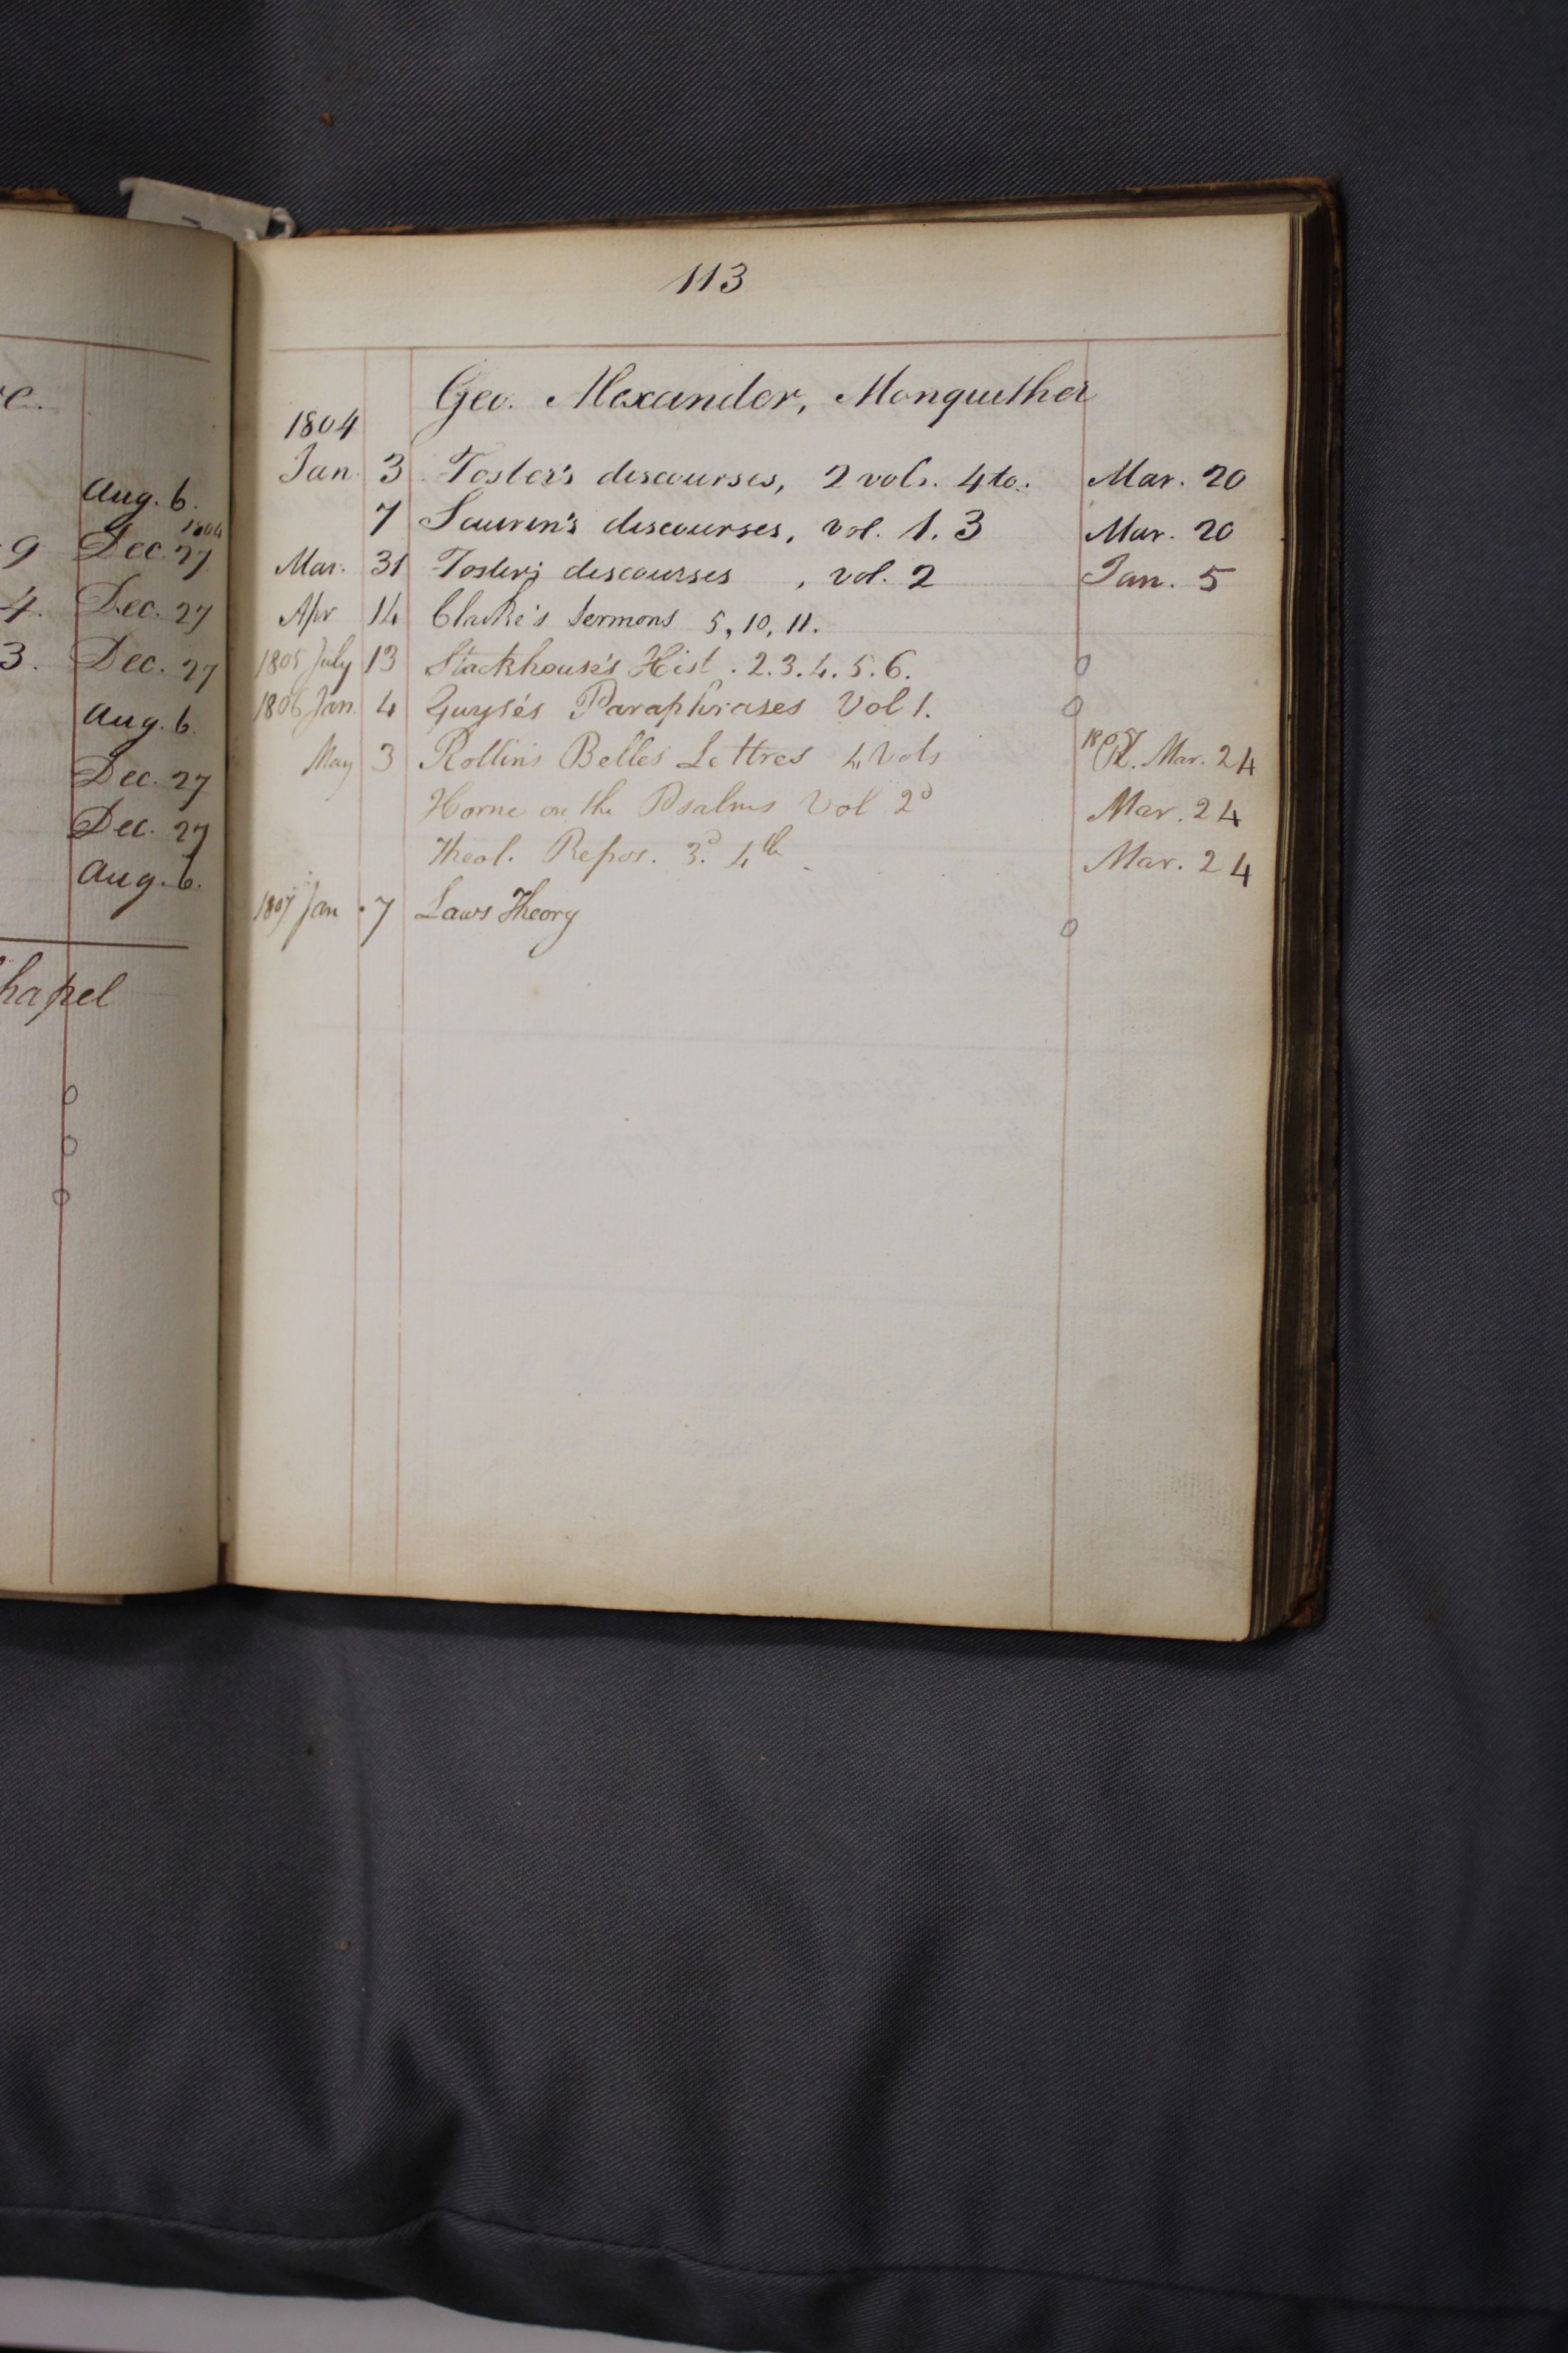 113
Geo. Alexander, Monquither
1804
Jan. 3 Foster's discourses, 2 vols. 4to. Mar. 20
7 Saurin's discourses, vol. 1. 3 Mar. 20
Mar. 31 Foster's discourses , vol. 2 Jan. 5
Apr 14 Clarke's Sermons 5, 10, 11.
1805 July 13 Stackhouse's Hist. 2. 3. 4. 5. 6.
1806 Jan. 4 Guyse's Paraphrases Vol 1.
May 3 Rollins Belles Lettres 4 Vols 1807 Mar. 24
Horne on the Psalms Vol 2d Mar. 24
Theol. Repos. 3d. 4th Mar. 24
1807 Jan 7 Laws Theory
Aug. 6.
1804
9 Dec. 27
4. Dec. 27
3. Dec. 27
Aug. 6.
Dec. 27
Dec. 27
Aug. 6.
hapel